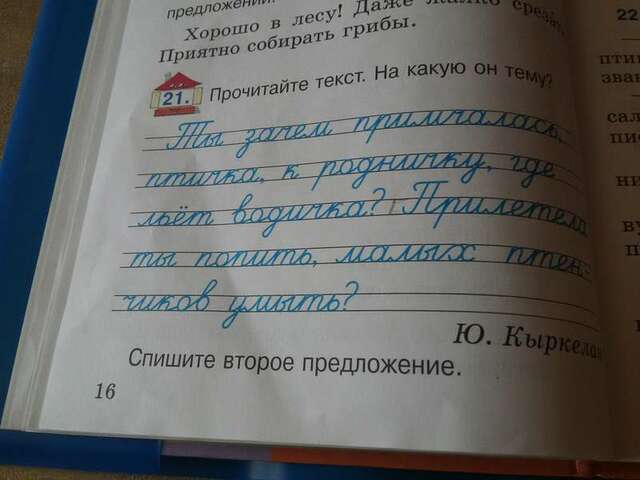 предложении.
Хорошо в лесу! Даже жалко
Приятно собирать грибы.
21. Прочитайте текст. На какую он тему?
Ты зачем примчалась,
птичка, к родничку, где
льёт водичка? Прилетела
ты попить, малых птен-
чиков умыть?
Ю. Кыркелан
Спишите второе предложение.
16
22
пти
зван
сал
пис
ни
ву
п